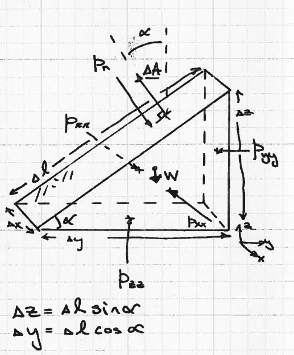 α
Pn
ΔA
Pxx
Δl
Δz
Pyy
W
Δx
α
Pxx
Δy
z
y
x
Pzz
Δz = Δl sinα
Δy = Δl cosα